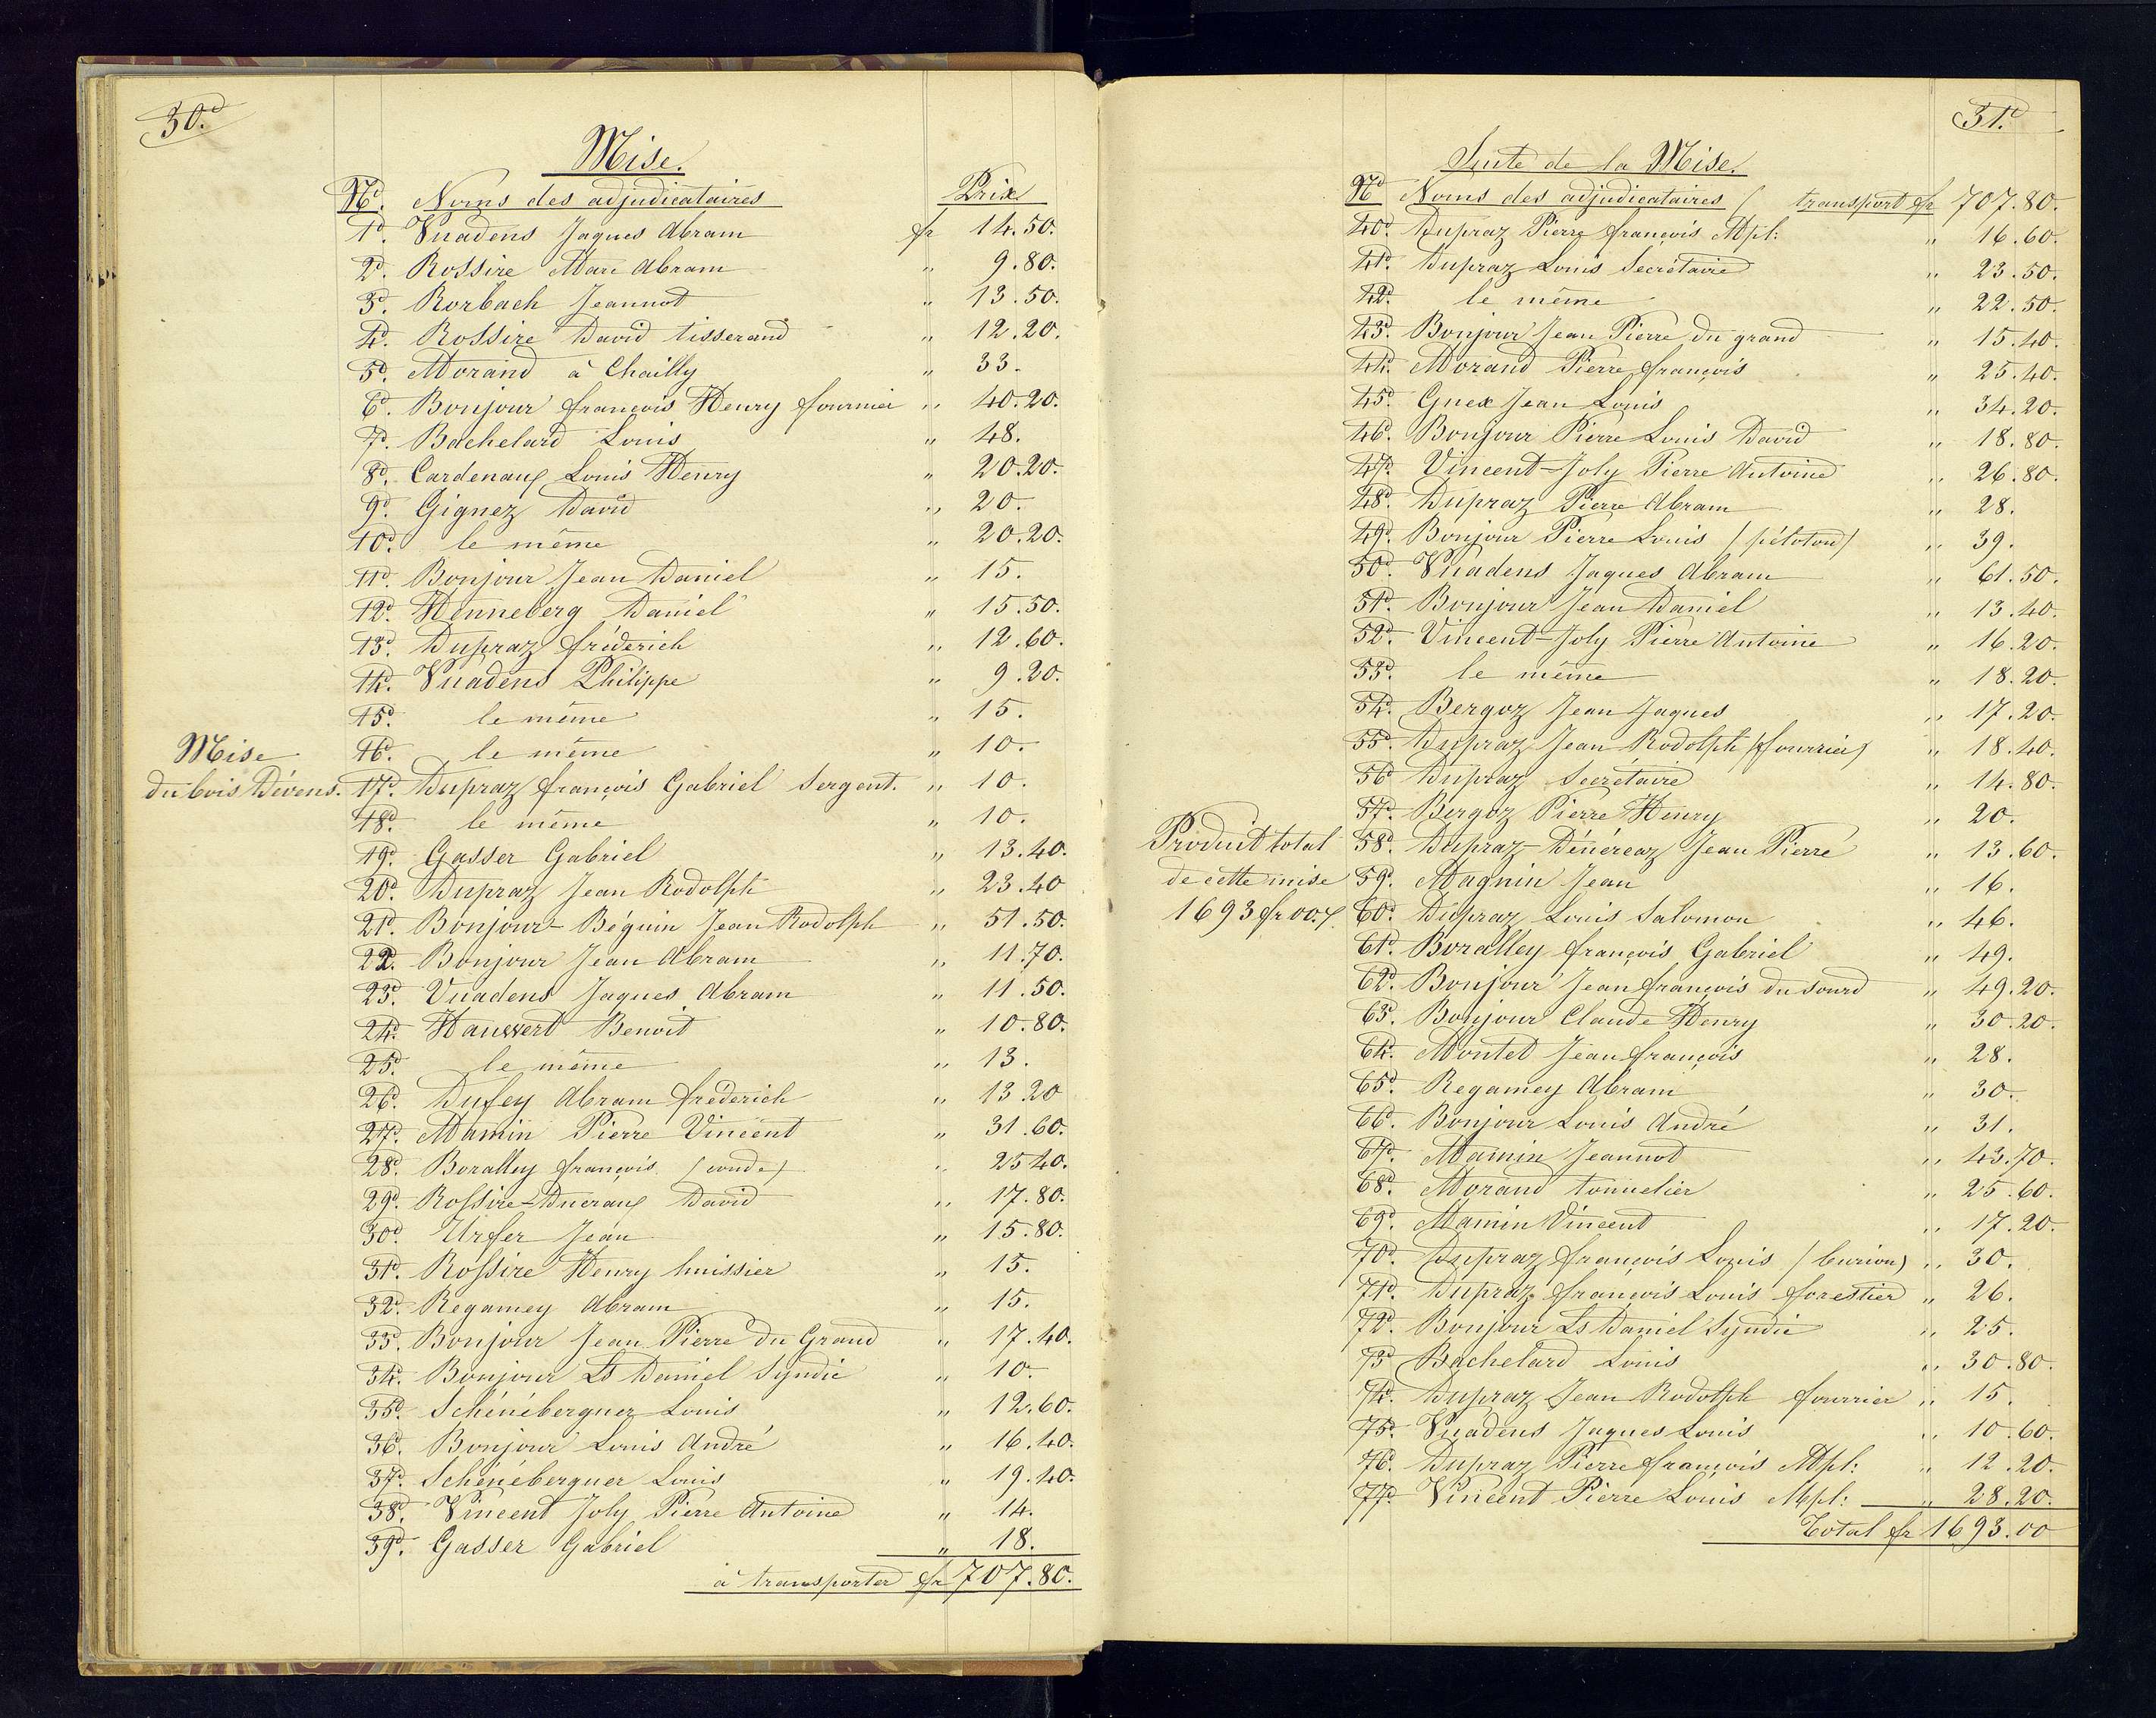 30.d
Mise.
No. Noms des adjudicataires Prix
1d. Vuadens Jaques Abram fr 14.50.
2d. Rossire Marc Abram " 9.80.
3d. Rorbach Jeannot " 13.50.
4d. Rossire David tisserand " 12.20.
5d. Morand à Chailly " 33.
6d. Bonjour françois Henry fournier " 40.20.
7d. Bachelard Louis " 48.
8d. Cardenaux Louis Henry " 20.20.
9d. Gignez David " 20.
10d. le même " 20.20.
11d. Bonjour Jean Daniel " 15.
12d. Henneberg Daniel " 15.50.
13d. Dupraz fréderich " 12.60.
14d. Vuadens Philippe " 9.20.
15d. le même " 15.
16d. le même " 10.
Mise
du bois Dévens.
17d. Dupraz françois Gabriel Sergent. " 10.
18d. le même " 10.
19d. Gasser Gabriel " 13.40.
20d Dupraz Jean Rodolph " 23.40
21d. Bonjour-Béguin Jean Rodolph " 51.50.
22. Bonjour Jean Abram " 11.70.
23d. Vuadens Jaques Abram " 11.50.
24d. Hauswert Benoit " 10.80.
25d. le même " 13.
26d. Dufey Abram fréderich " 13 20
27d. Mamin Pierre Vincent " 31.60.
28d. Boralley françois (coude) " 25 40.
29d. Rossire-Ducraux David " 17.80.
30d. Urfer Jean " 15.80.
31d. Rossire Henry huissier " 15.
32d. Regamey Abram " 15.
33d. Bonjour Jean Pierre du Grand " 17.40.
34d. Bonjour Ls Daniel Syndic " 10.
35d. Schénéberguer Louis " 12.60.
36d. Bonjour Louis André " 16.40.
37d. Schénéberguer Louis " 19.40.
38d. Vincent Joly Pierre Antoine " 14.
39d. Gasser Gabriel " 18.
à transporter fr 707.80.
31.d
Suite de la Mise.
No Noms des adjudicataires / transport fr 707.80.
40d. Dupraz Pierre françois Mpl: " 16.60.
41d. Dupraz Louis Secrétaire " 23.50.
42d. le même " 22.50.
43d. Bonjour Jean Pierre du grand " 15.40.
44d. Morand Pierre françois " 25.40.
45d. Guex Jean Louis " 34.20.
46d. Bonjour Pierre Louis David " 18.80.
47d. Vincent-Joly Pierre Antoine " 26.80.
48d. Dupraz Pierre Abram " 28.
49d. Bonjour Pierre Louis (péloton) " 39.
50d. Vuadens Jaques Abram " 61.50.
51d. Bonjour Jean Daniel " 13.40.
52d. Vincent-Joly Pierre Antoine " 16.20.
53d. le même " 18.20.
54d. Bergoz Jean Jaques " 17.20.
55d. Dupraz Jean Rodolph (fourrier) " 18.40.
56d Dupraz Secrétaire " 14.80.
57d. Bergoz Pierre Henry " 20.
Produit total
de cette mise
1693 fr 00.
58d. Dupraz-Dénéréaz Jean Pierre " 13.60.
59d. Magnin Jean " 16.
60d. Dupraz Louis Salomon " 46.
61d. Boralley françois Gabriel " 49.
62d. Bonjour Jean françois du sourd " 49.20.
63d. Bonjour Claude Henry " 30.20.
64d. Montet Jean françois " 28.
65d. Regamey Abram " 30.
66d. Bonjour Louis André " 31.
67d. Mamin Jeannot " 43.70.
68d. Morand tonnelier " 25.60.
69d. Mamin Vincent " 17.20.
70d. Dupraz françois Louis (burion) " 30.
71d. Dupraz françois Louis forestier " 26.
72d. Bonjour Ls Daniel Syndic " 25.
73d Bachelard Louis " 30.80.
74d. Dupraz Jean Rodolph fourrier " 15.
75d. Vuadens Jaques Louis " 10.60.
76d. Dupraz Pierre françois Mpl: " 12.20.
77d. Vincent Pierre Louis Mpl: " 28.20.
Total fr 1693.00